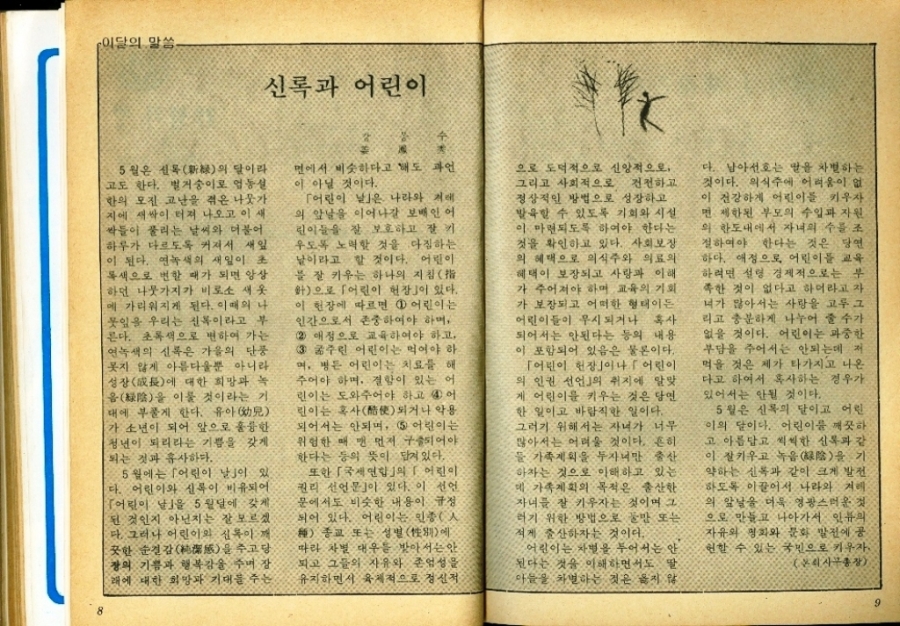 이달의 말씀
신록과 어린이
5월은 신록(新緑)의 달이라
고도 한다. 벌거숭이로 엄동설
한의 모진 고난을 겪은 나뭇가
지에 새싹이 터져 나오고 이 새
싹들이 풀리는 날씨와 더불어
하루가 다르도록 커져서 새잎
이 된다. 연녹색의 새잎이 초
록색으로 변할 때가 되면 앙상
하던 나뭇가지가 비로소 새 옷
에 가리워지게 된다. 이때의 나
뭇잎을 우리는 신록이라고 부
른다. 초록색으로 변하여 가는
연녹색의 신록은 가을의 단풍
못지 않게 아름다울뿐 아니라
성장(成長)에 대한 희망과 녹
음(緑陰)을 이룰 것이라는 기
대에 부풀게 한다. 유아(幼兒)
가 소년이 되어 앞으로 훌륭한
청년이 되리라는 기쁨을 갖게
되는 것과 흡사하다.
5월에는 「어린이 날」이 있
다. 어린이와 신록이 비유되어
「어린이 날」을 5월달에 갖게
된 것인지 아닌지는 잘 모르겠
다. 그러나 어린이와 신록이 깨
끗한 순결감(純潔感)을 주고 당
장의 기쁨과 행복감을 주며 장
래에 대한 희망과 기대를 주는
면에서 비슷하다고 해도 과언
이 아닐 것이다.
「어린이 날」은 나라와 겨레
의 앞날을 이어나갈 보배인 어
린이들을 잘 보호하고 잘 키
우도록 노력할 것을 다짐하는
날이라고 할 것이다. 어린이
를 잘 키우는 하나의 지침(指
針)으로 「어린이 헌장」이 있다.
이 헌장에 따르면 ① 어린이는
인간으로서 존중하여야 하며,
② 애정으로 교육하여야 하고,
③ 굶주린 어린이는 먹여야 하
며, 병든 어린이는 치료를 해
주어야 하며, 결함이 있는 어
린이는 도와주어야 하고 ④ 어
린이는 혹사(酷使)되거나 악용
되어서는 안되며, ⑤ 어린이는
위험한 때 맨 먼저 구출되어야
한다는 등의 뜻이 담겨있다.
또한 「국제연합」의 「어린이
권리 선언문」이 있다. 이 선언
문에서도 비슷한 내용이 규정
되어 있다. 어린이는 인종(人
種) 종교 또는 성별(性別)에
따라 차별 대우를 받아서는안
되고 그들의 자유와 존엄성을
유지하면서 육체적으로 정신적
8
으로 도덕적으로 신앙적으로,
그리고 사회적으로 건전하고
정상적인 방법으로 성장하고
발육할 수 있도록 기회와 시설
이 마련되도록 하여야 한다는
것을 확인하고 있다. 사회보장
의 혜택으로 의식주와 의료의
혜택이 보장되고 사랑과 이해
가 주어져야 하며 교육의 기회
가 보장되고 어떠한 형태이든
어린이들이 무시되거나 혹사
되어서는 안된다는 등의 내용
이 포함되어 있음은 물론이다.
「어린이 헌장」이나 「어린이
의 인권 선언」의 취지에 알맞
게 어린이를 키우는 것은 당연
한 일이고 바람직한 일이다.
그러기 위해서는 자녀가 너무
많아서는 어려울 것이다. 흔히
들 가족계획을 두자녀만 출산
하자는 것으로 이해하고 있는
데 가족계획의 목적은 출산한
자녀를 잘 키우자는 것이며 그
러기 위한 방법으로 둘만 또는
적게 출산하자는 것이다.
어린이는 차별을 두어서는 안
된다는 것을 이해하면서도 딸
아들을 차별하는 것은 옳지 않
다. 남아선호는 딸을 차별하는
것이다. 의식주에 어려움이 없
이 건강하게 어린이를 키우자
면 제한된 부모의 수입과 자원
의 한도내에서 자녀의 수를 조
정하여야 한다는 것은 당연
하다. 애정으로 어린이를 교육
하려면 설령 경제적으로는 부
족한 것이 없다고 하더라고 자
녀가 많아서는 사랑을 고루 그
리고 충분하게 나누어 줄 수가
없을 것이다. 어린이는 과중한
부담을 주어서는 안되는데 저
먹을 것은 제가 타가지고 나온
다고 하여서 혹사하는 경우가
있어서는 안될 것이다.
5월은 신록의 달이고 어린
이의 달이다. 어린이를 깨끗하
고 아름답고 씩씩한 신록과 같
이 잘키우고 녹음(緑陰)을 기
약하는 신록과 같이 크게 발전
하도록 이끌어서 나라와 겨레
의 앞날을 더욱 영광스러운 것
으로 만들고 나아가서 인류의
자유와 평화와 문화 발전에 공
헌할 수 있는 국민으로 키우자.
(본회사무총장)
9